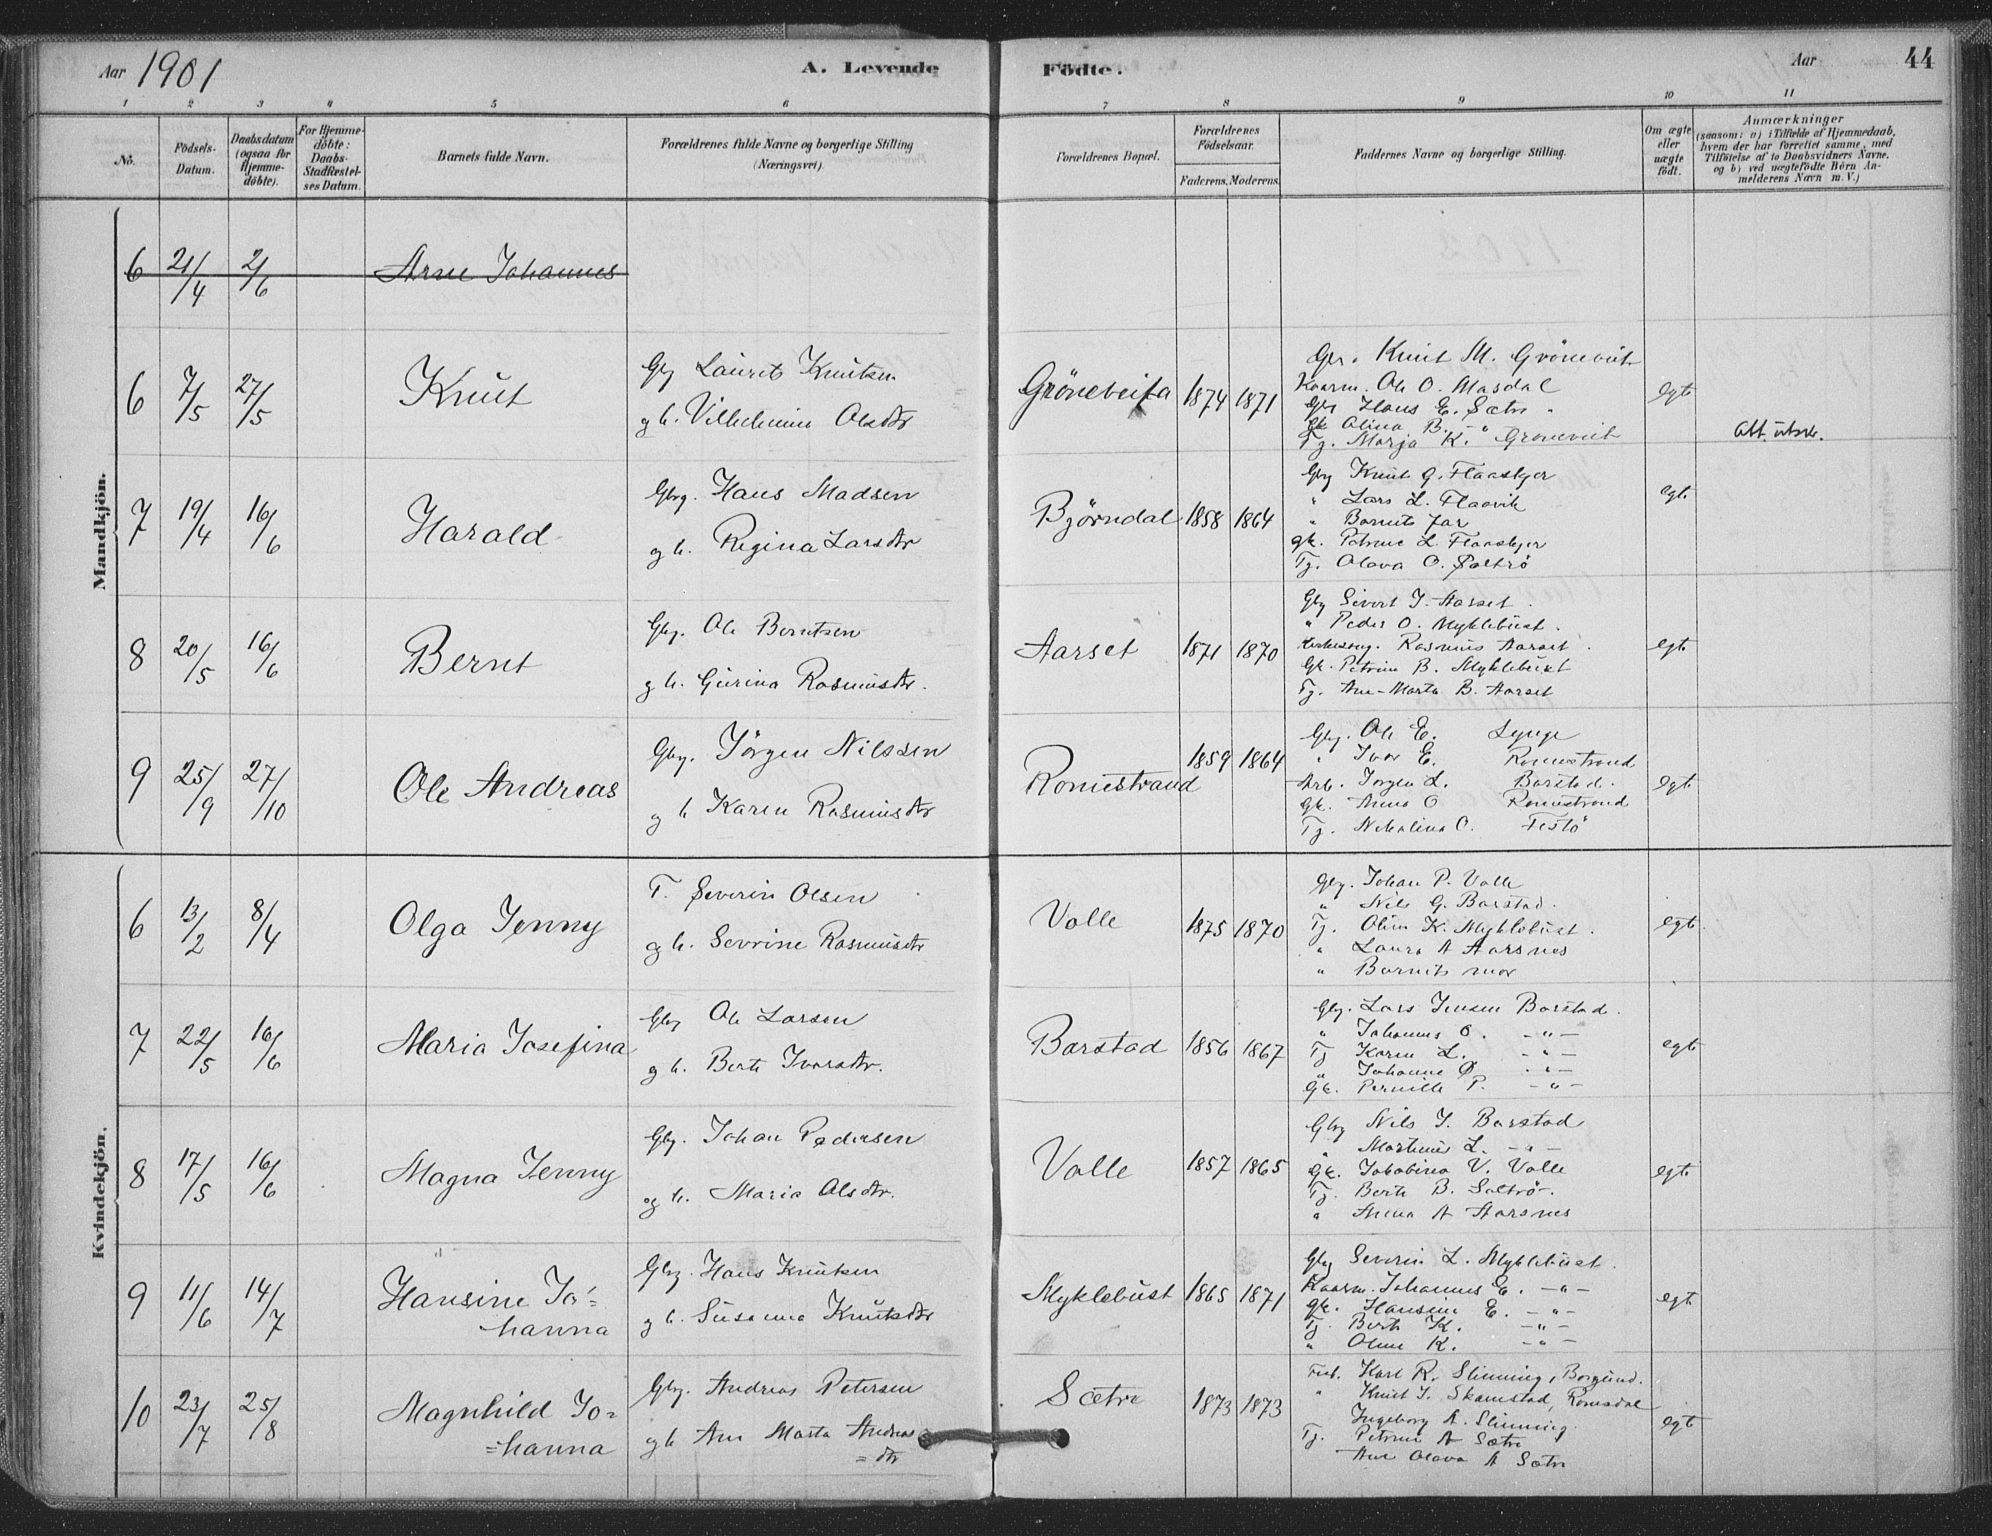 Aar 1901 A. Levende Födte. Aar 44
1 2 3 4 5 6 7 8 9 10 11
No.
Födsels-Datum.
Daabsdatum (ogsaa for Hjemme-döbte).
For Hjemme-döbte: Daabs-Stadfæstel-ses Datum.
Barnets fulde Navn.
Forældrenes fulde Navne og borgerlige Stilling (Næringsvei).
Forældrenes Bopæl.
Forældrenes Födselsaar.
Faderens. Moderens.
Faddernes Navne og borgerlige Stilling.
Om ægte eller uægte födt.
Anmærkninger
(saasom: a) i Tilfælde af Hjemmedaab,
hvem der har forrettet samme, med
Tilföielse af to Daabsvidners Navne.
og b) ved uægtefödte Börn An-
melderens Navn m. V.)
Mandkjön.
6 21/4 2/6 Arne Johannes
6 7/5 27/5 Knut
Gbr Laurits Knutsen
og h. Vilhelmine Olsdtr
Gröneveita 1874 1871
Gbr. Knut M. Gröneveit
Kaarm. Ole O. Masdal
Gbr Hans E. Sætre
Gk Alina B. "
Tj. Marja K. Gronveit
egte
Att. utsk.
7 19/4 16/6 Harald
Gbrg. Hans Madsen
og h. Regina Larsdtr
Björndal 1858 1864
Gbrg Knut G. Flaaskjer
" Lars L. Flaavik
" Barnets far
gk. Petrine L. Flaaskjer
Tj. Olava O. Sæltrö
egte
8 20/5 16/6 Bernt
Gbr. Ole Berntsen
og h. Gurina Rasmusdtr.
Aarset 1871 1870
Gbg Sivert J. Aarset.
" Peder O. Myklebust.
Kirkesang. Rasmus Aarset.
Gk. Petrine B. Myklebust
Tj. Ane-Marta B. Aarset
egte
9 25/9 27/10 Ole Andreas
Gbrg. Jörgen Nilssen
og h Karen Rasmusdtr
Romestrand 1859 1864
Gbrg. Ole E. Lynge
" Ivar E. Romestrand
Arb. Jorgen L. Barstad.
Gk. Anna O Romestrand
Tj. Nikoline O. Festö
egte
Kvindekjön.
6 13/2 8/4 Olga Jenny
T. Severin Olsen
og h. Sevrine Rasmusdtr
Valle 1875 1870
Gbg. Johan P. Valle
" Nils G. Barstad.
Tj. Oline K. Myklebust.
" Laura A Aarsnes
" Barnets mor
egte
7 22/5 16/6 Maria Josefina
Gbr Ole Larsen
og h. Berte Ivarsdtr.
Barstad 1856 1867
Gbg. Lars Jensen Barstad.
" Johannes O. -"-
Tj Karen L. -"-
" Johanne Ø. -"-
Gk. Pernille P. -"-
egte
8 17/5 16/6 Magna Jenny
Gbg. Johan Pedersen
og h. Maria Olsdtr.
Valle 1857 1865
Gbrg Nils J. Barstad
" Martinus L. -"-
Gk. Jakobina V. Valle
Tj. Berte B. Saltrö.
" Anna A Aarsnes
egte
9 11/6 14/7 Hansine Jo=
hanna
Gbrg. Hans Knutsen
og h. Susanna Knutsdtr
Myklebust 1865 1871
Gbg Severin L. Myklebust.
Kaarm. Johannes E. -"-
Gk. Hansine E. -"-
Tj. Berte K. -"-
" Oline K. -"-
egte
10 23/7 25/8 Magnhild Jo=
=hanna
Gbrg. Andreas Petersen
og h Ane Marta Andreas
=dtr
Sætre 1873 1873
Karl R. Slinning, Borgund.
" Knut J. Skamstad, Romsdal
Ingeborg A. Slinning
Tj. Petrine A Sætre
Ane Olava A Sætre
egte